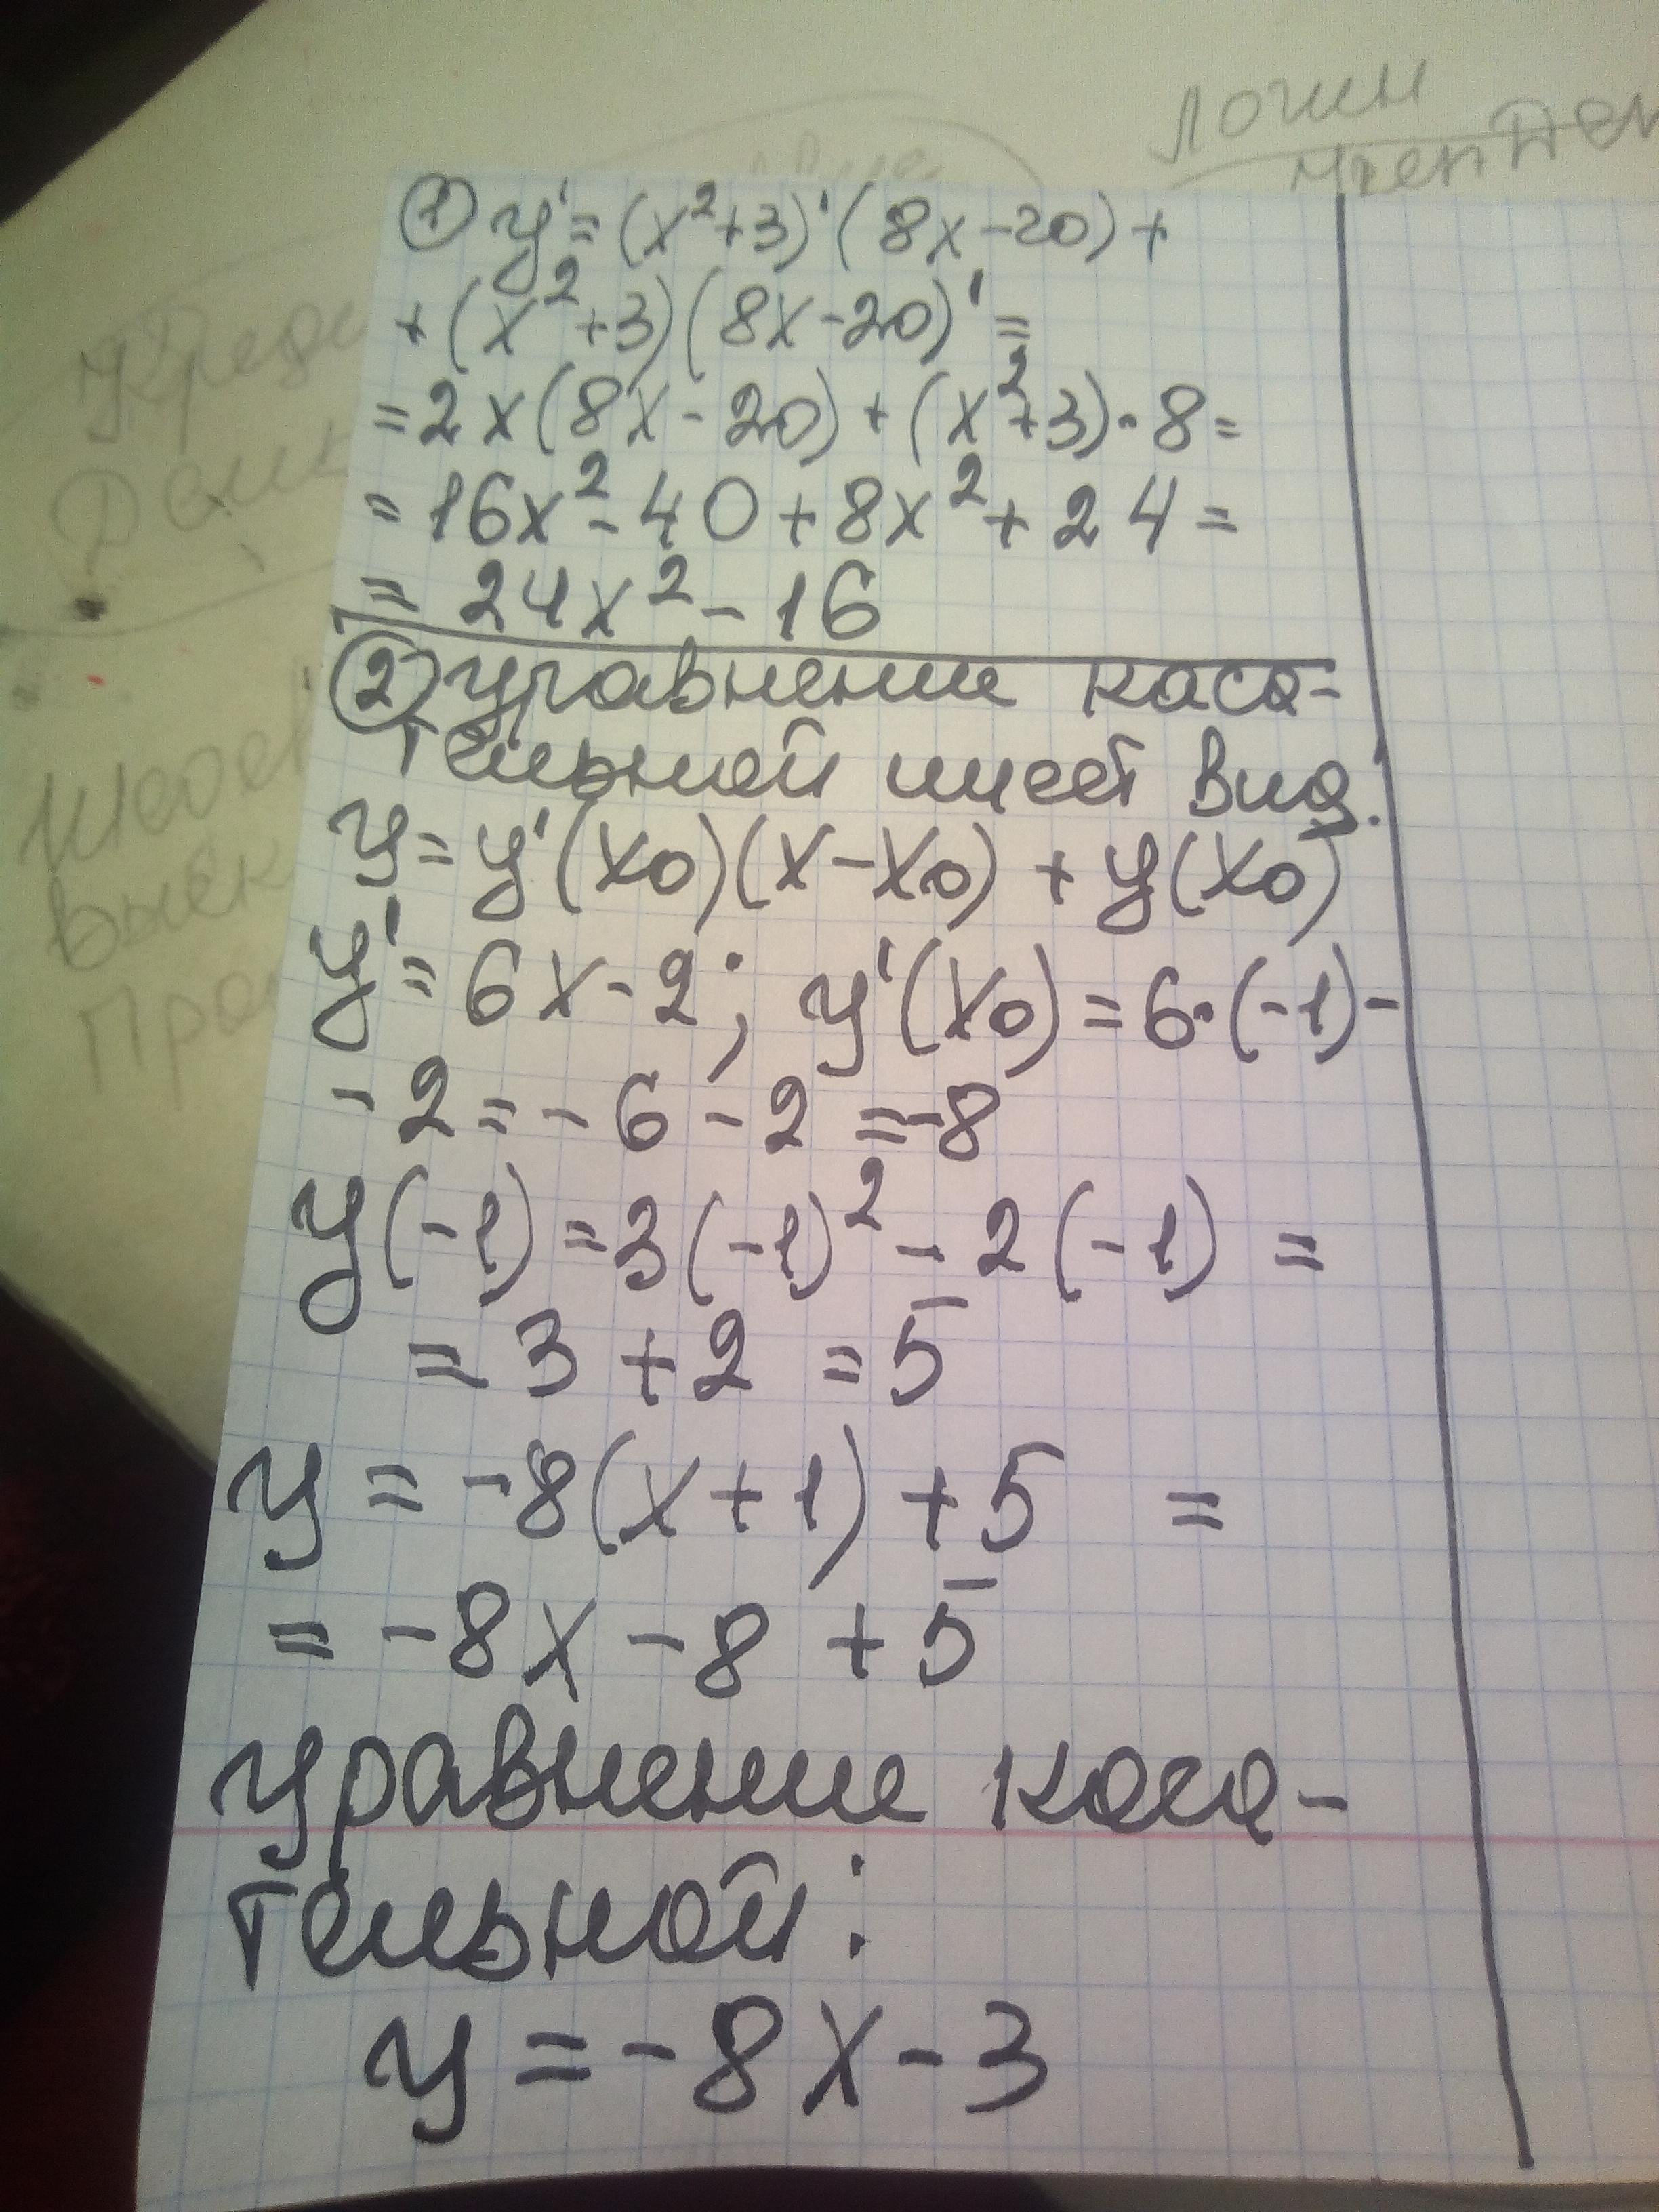 логин
① y' = (x²+3)'(8x-20)+
+(x²+3)(8x-20)' =
=2x(8x-20)+(x²+3)·8=
= 16x²-40+8x²+24=
= 24x²-16
② уравнение каса-
тельной имеет вид:
y = y'(x0)(x-x0)+y(x0)
y' = 6x-2; y'(x0)=6·(-1)-
-2=-6-2=-8
y(-1)=3(-1)²-2(-1)=
=3+2=5
y = -8(x+1)+5 =
= -8x-8+5
уравнение каса-
тельной:
y = -8x-3